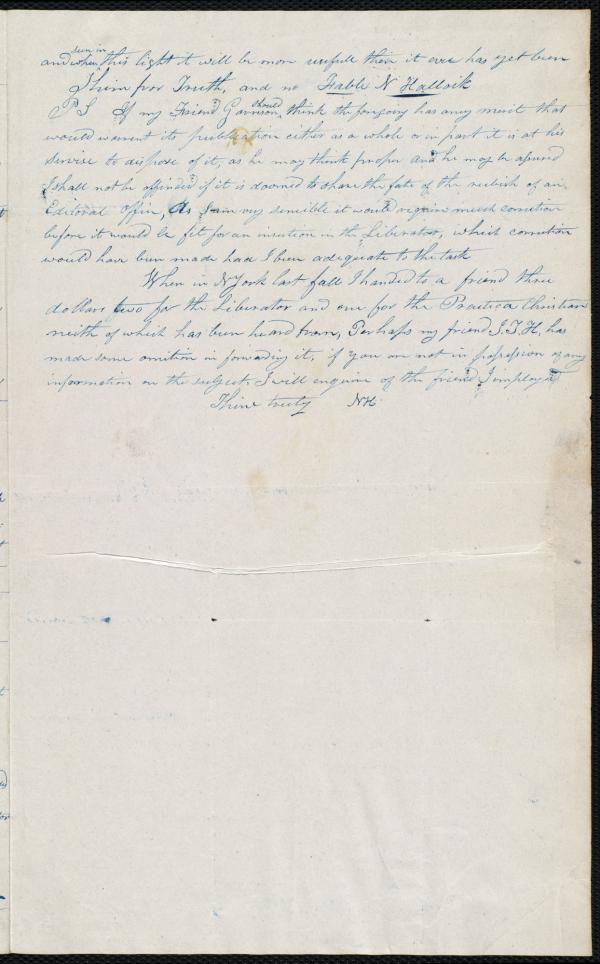 and when seen in this light it will be more usefull then it ever has yet been
Thine for Truth, and no Fable N Hallock
PS If my Friend Garrison, should think the forgoing has anny merit that
would warrent its publication either as a whole or in part it is at his
service to dispose of it, as he may think proper and he may be assured
I shall not be offinded if it is doomed to share the fate of the rubish of an
Editoral offin, As I am my sensible it would require much corection
before it would be fit for an insertion in the Liberator, which corection
would have been made had I been adequate to the task
When in N York last fall I handed to a friend three
dollars two for the Liberator and one for the Practica Christian
neith of which has been heard from, Perhaps my friend I.T.H, has
made some omition in forwarding it, if you are not in possession of any
information on the subject, I will enquire of the friend I imployed
Thine truly NH